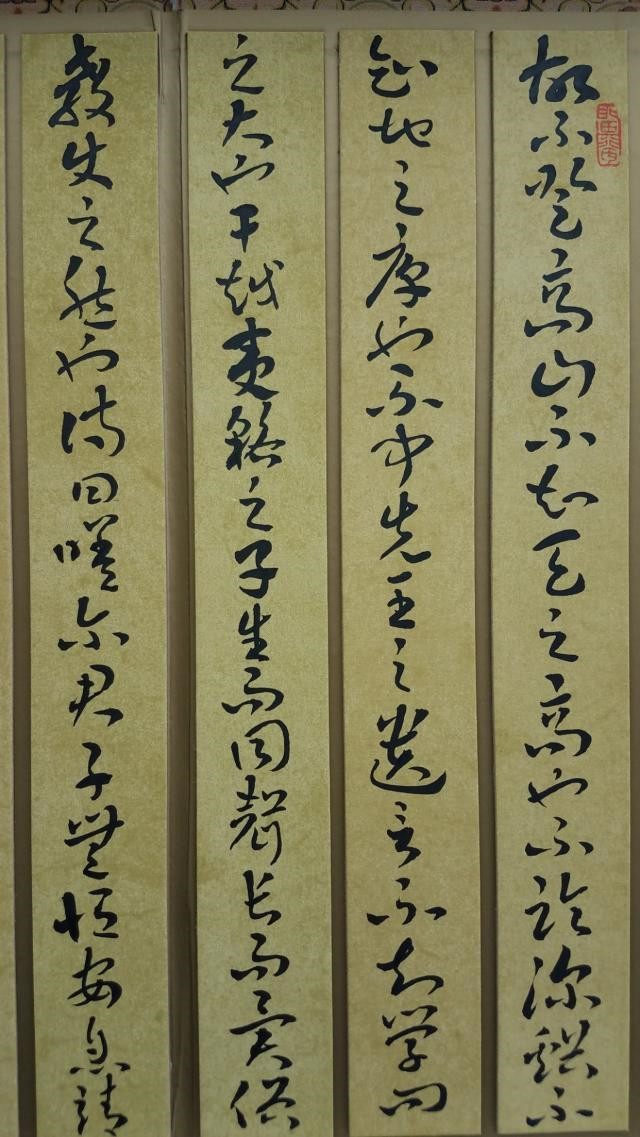 故不登高山不知天之高也不臨深谿不
知地之厚也不聞先王之遺言不知學問
之大也干越夷貉之子生而同聲長而異俗
教使之然也詩曰嗟尔君子無恒安息靖